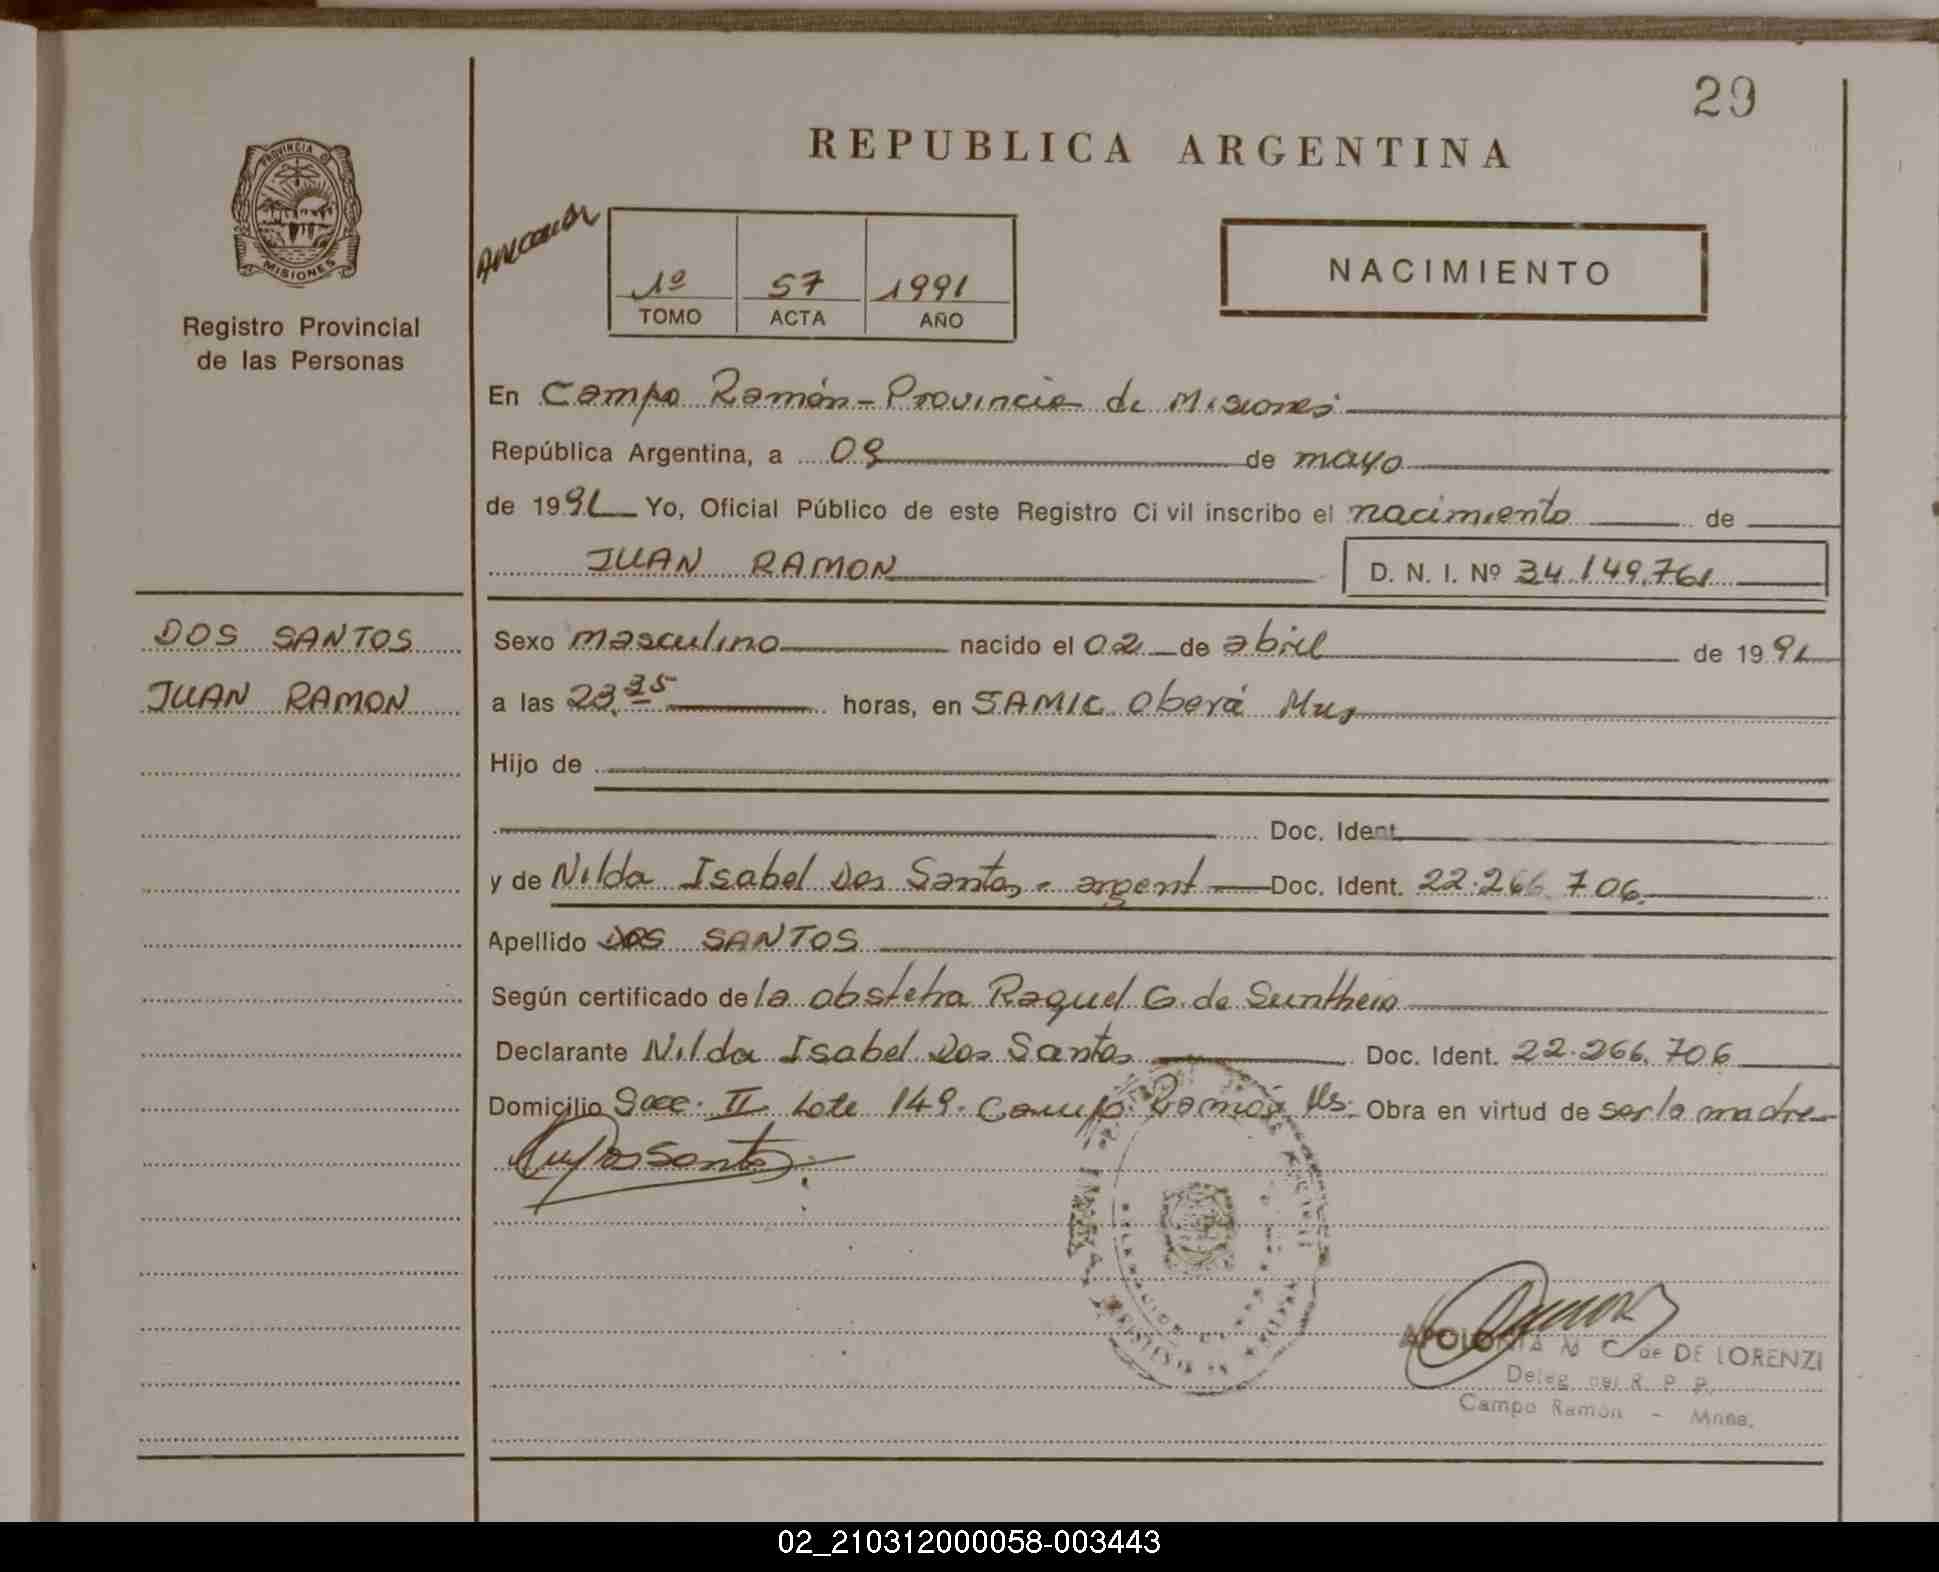 29
REPUBLICA ARGENTINA
PROVINCIA DE
MISIONES
Registro Provincial
de las Personas
1º 57 1991
TOMO ACTA AÑO
NACIMIENTO
En Campo Ramón - Provincia de Misiones
República Argentina, a 09 de mayo
de 1991 Yo, Oficial Público de este Registro Civil inscribo el nacimiento de
JUAN RAMON D. N. I. Nº 34.149.761
DOS SANTOS
JUAN RAMON
Sexo masculino nacido el 02 de abril de 1991
a las 23.35 horas, en SAMIC Oberá Mns
Hijo de
Doc. Ident.
y de Nilda Isabel Dos Santos - argent Doc. Ident. 22.266.706.
Apellido DOS SANTOS
Según certificado de la obstetra Raquel G. de
Declarante Nilda Isabel Dos Santos Doc. Ident. 22.266.706
Domicilio Secc. II Lote 149. Campo Ramón Mns. Obra en virtud de ser la madre
APOLONIA M C de DE LORENZI
Deleg del R. P. P.
Campo Ramón - Mnes.
02_210312000058-003443